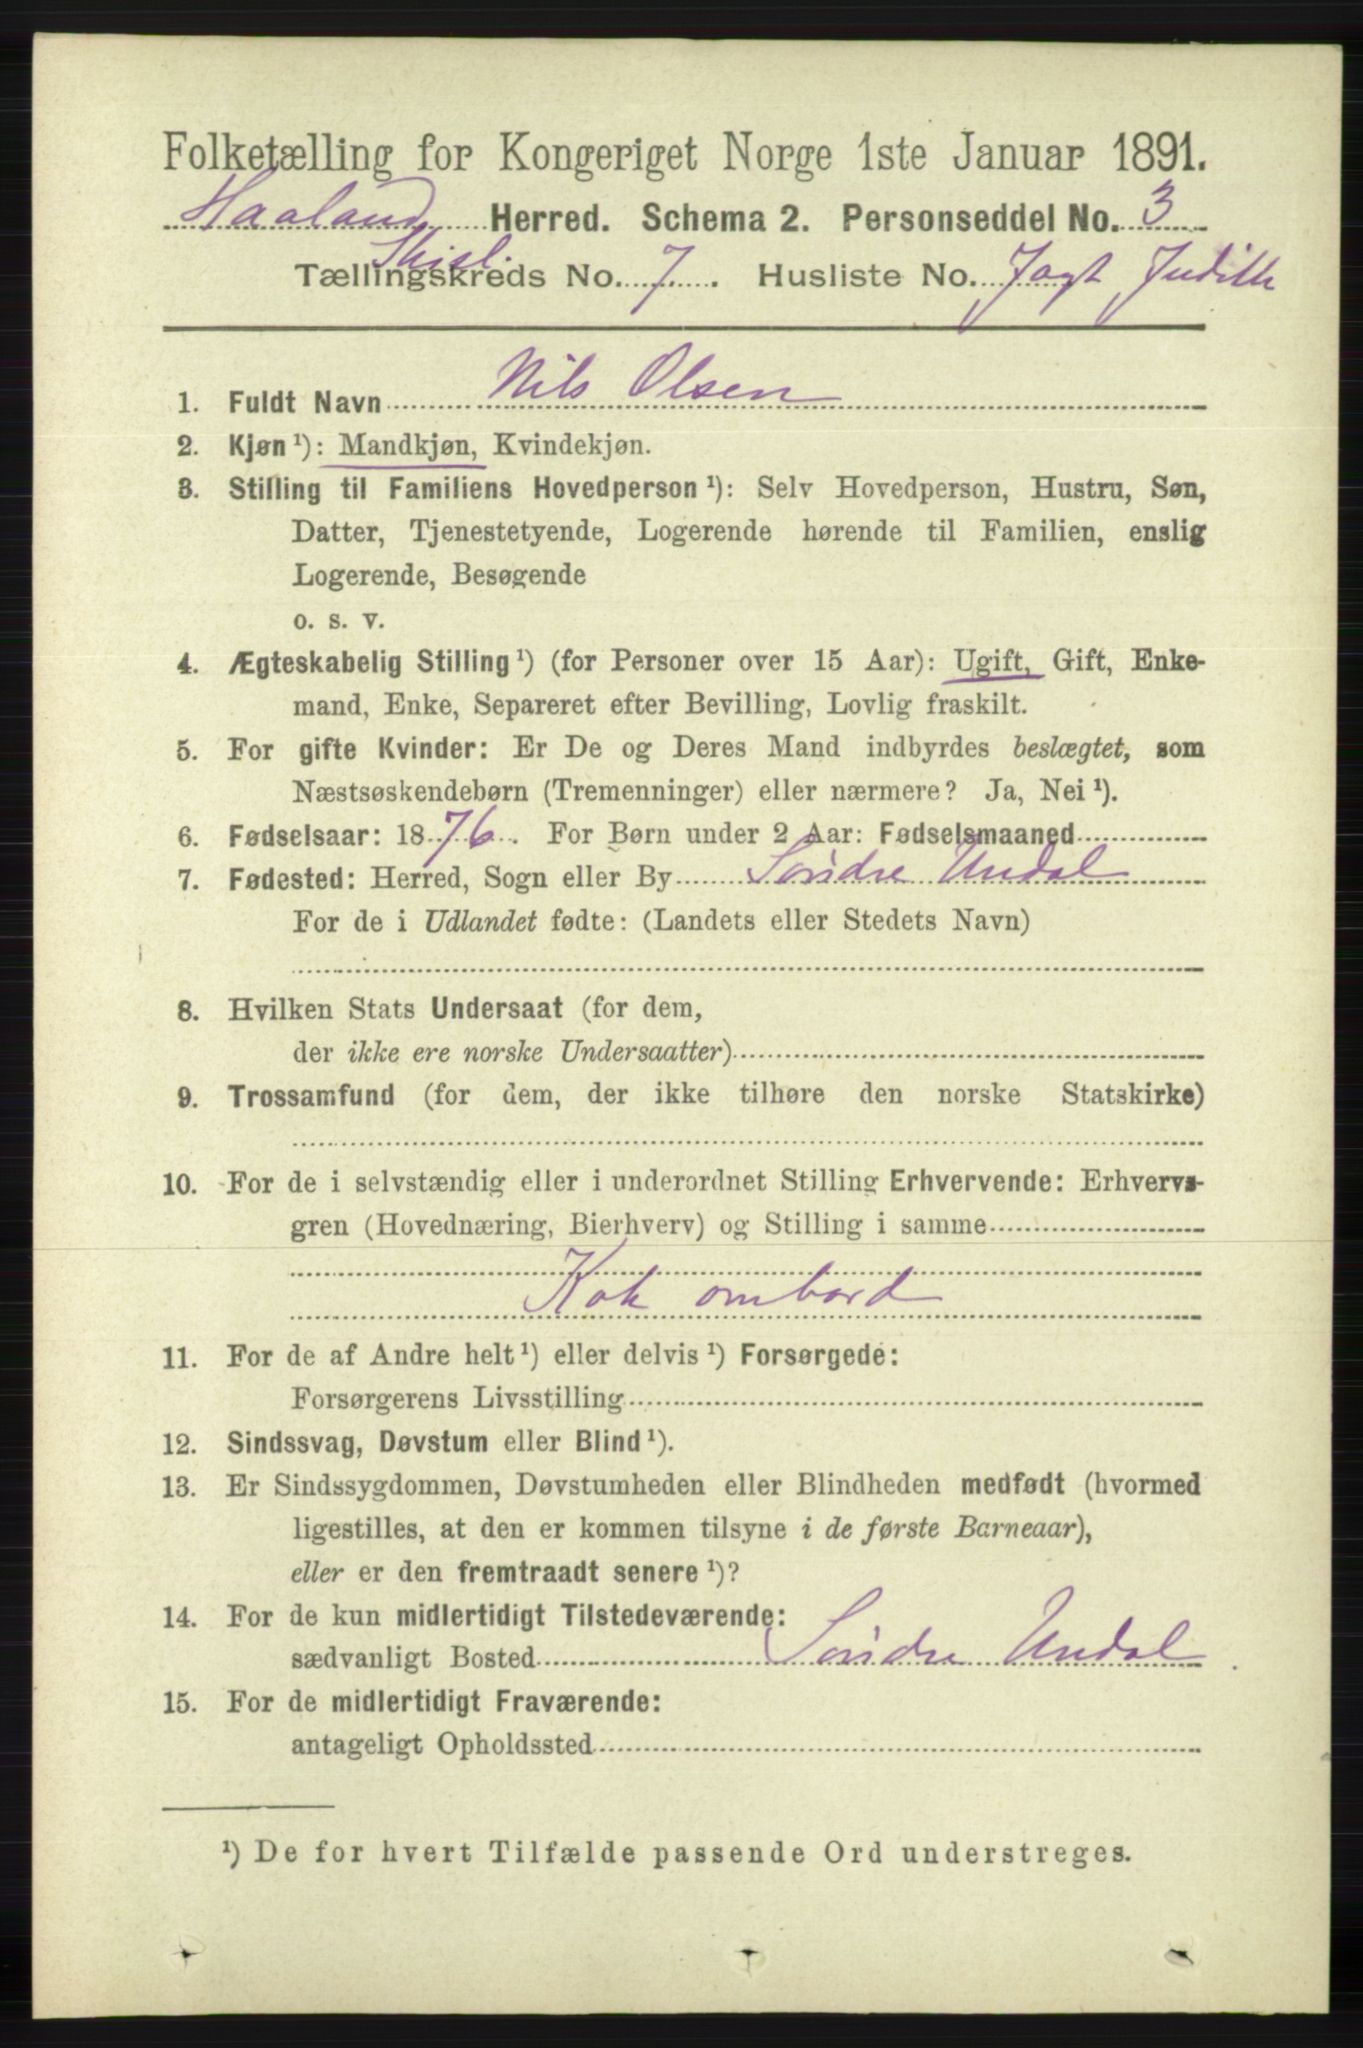 Folketælling for Kongeriget Norge 1ste Januar 1891.
Haaland Herred. Schema 2. Personseddel No. 3
Tællingskreds No. 7. Husliste No. Jagt Judith
1. Fuldt Navn Nils Olsen
2. Kjøn ¹): Mandkjøn, Kvindekjøn.
3. Stilling til Familiens Hovedperson ¹): Selv Hovedperson, Hustru, Søn,
Datter, Tjenestetyende, Logerende hørende til Familien, enslig
Logerende, Besøgende
o. s. v.
4. Ægteskabelig Stilling ¹) (for Personer over 15 Aar): Ugift, Gift, Enke-
mand, Enke, Separeret efter Bevilling, Lovlig fraskilt.
5. For gifte Kvinder: Er De og Deres Mand indbyrdes beslægtet, som
Næstsøskendebørn (Tremenninger) eller nærmere? Ja, Nei ¹).
6. Fødselsaar: 1876. For Børn under 2 Aar: Fødselsmaaned
7. Fødested: Herred, Sogn eller By Søndre Undal
For de i Udlandet fødte: (Landets eller Stedets Navn)
8. Hvilken Stats Undersaat (for dem,
der ikke ere norske Undersaatter)
9. Trossamfund (for dem, der ikke tilhøre den norske Statskirke)
10. For de i selvstændig eller i underordnet Stilling Erhvervende: Erhvervs-
gren (Hovednæring, Bierhverv) og Stilling i samme
Kok ombord
11. For de af Andre helt ¹) eller delvis ¹) Forsørgede:
Forsørgerens Livsstilling
12. Sindssvag, Døvstum eller Blind ¹).
13. Er Sindssygdommen, Døvstumheden eller Blindheden medfødt (hvormed
ligestilles, at den er kommen tilsyne i de første Barneaar),
eller er den fremtraadt senere ¹)?
14. For de kun midlertidigt Tilstedeværende:
sædvanligt Bosted Søndre Undal
15. For de midlertidigt Fraværende:
antageligt Opholdssted
¹) De for hvert Tilfælde passende Ord understreges.